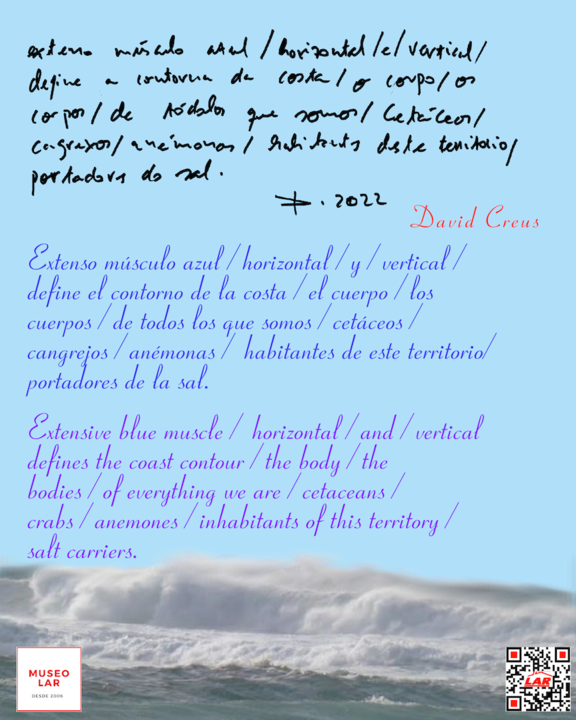 extenso músculo azul / horizontal / e / vertical /
define a contorna da costa / o corpo / os
corpos / de tódolos que somos / Cetáceos /
cangrexos / anémonas / habitantes deste territorio /
portadores do sal.
. 2022
David Creus
Extenso músculo azul / horizontal / y / vertical /
define el contorno de la costa / el cuerpo / los
cuerpos / de todos los que somos / cetáceos /
cangrejos / anémonas / habitantes de este territorio/
portadores de la sal.
Extensive blue muscle / horizontal / and / vertical
defines the coast contour / the body / the
bodies / of everything we are / cetaceans /
crabs / anemones / inhabitants of this territory /
salt carriers.
MUSEO
LAR
DESDE 2006
LAR